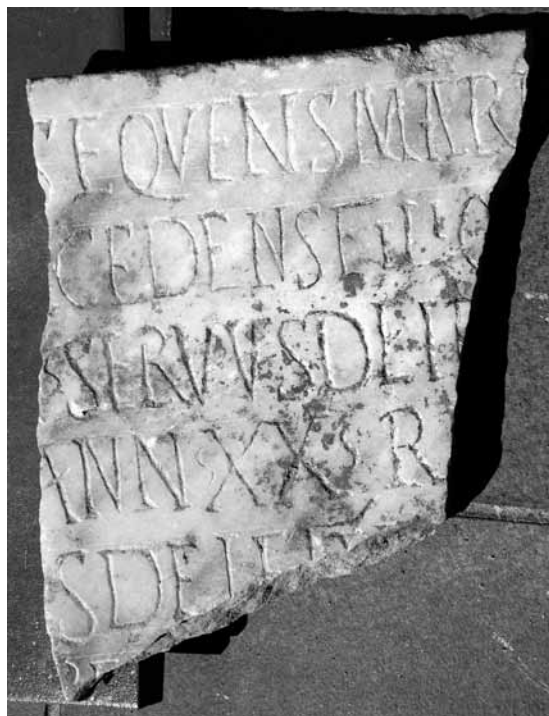 SEQVENS MAR
CEDENS ET I
SERVVS DEI
ANN XX R
S DEI